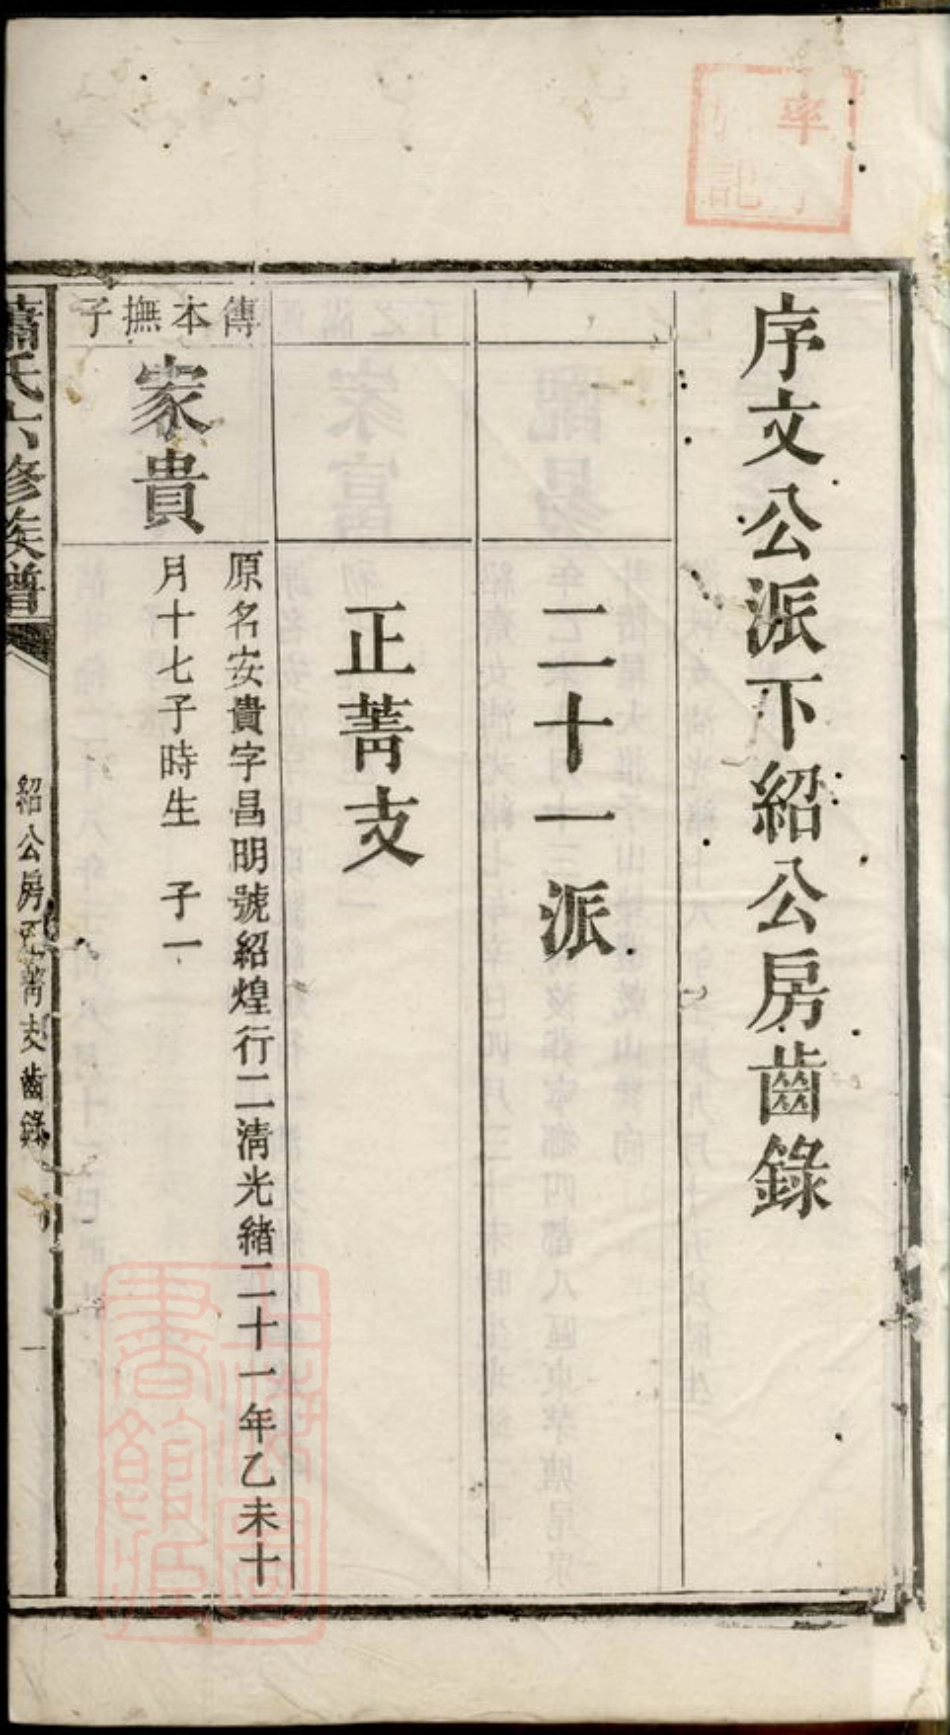 序文公派下紹公房齒錄
二十一派
正菁支
傳本撫子
家貴
原名安貴字昌明號紹煌行二清光緒二十一年乙未十
月十七子時生 子一
蕭氏六修族譜
紹公房正菁支齒錄
一